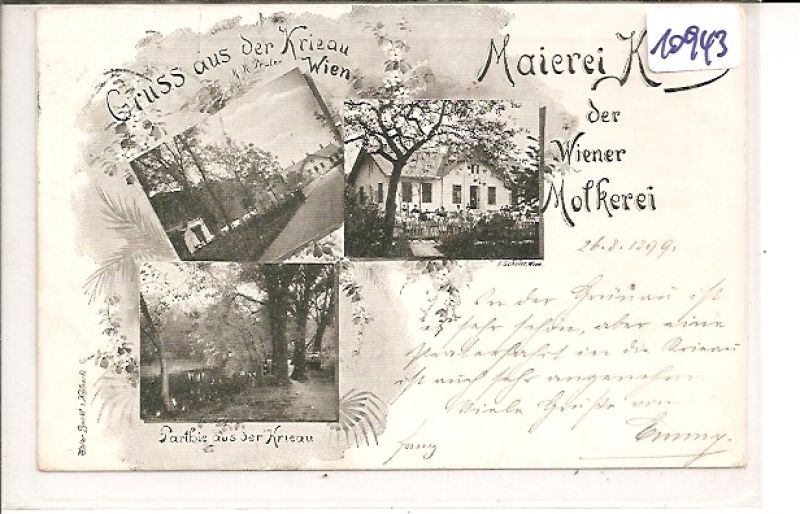 10943
Gruss aus der Krieau
K. K. Prater
Wien
Maierei K
der
Wiener
Molkerei
26.8.1899.
In der Grünau ist
es sehr schön, aber eine
Praterfahrt in die Krieau
ist auch sehr angenehm
Viele Grüße von
Emmy.
Parthie aus der Krieau